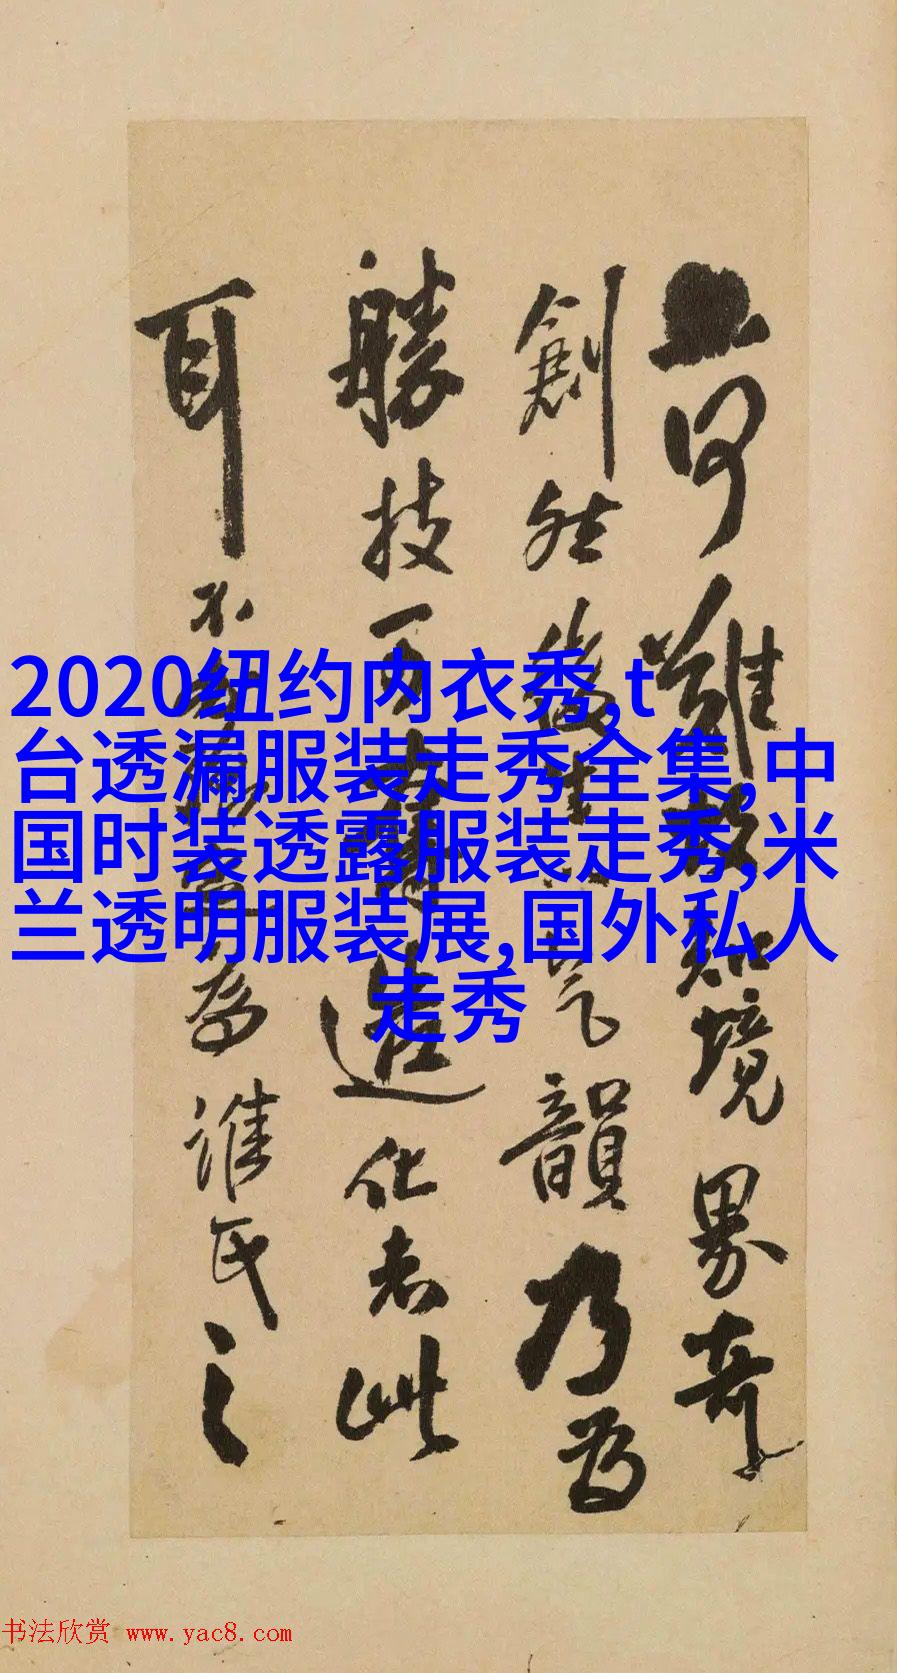 何難故知境界奇
創然後氣韻乃為
勝技造化者此
耳不為誰氏之
2020纽约内衣秀,t
台透漏服装走秀全集,中
国时装透露服装走秀,米
兰透明服装展,国外私人
走秀
书法欣赏 www.yac8.com